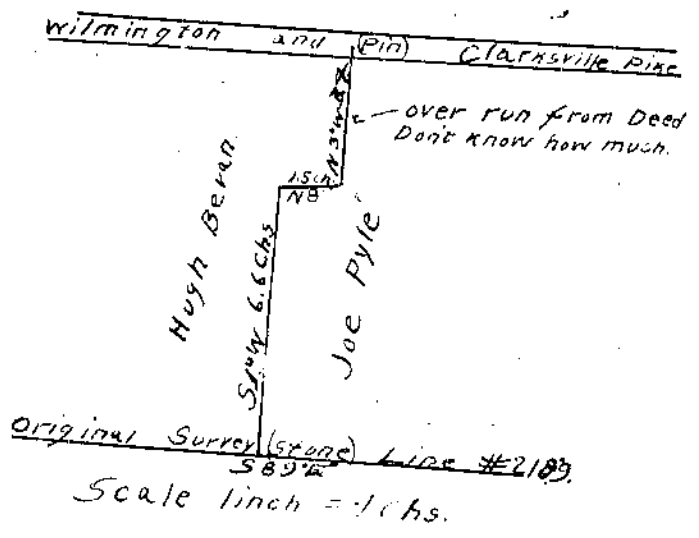 Wilmington and (Pin) Clarksville Pike
N 3°W
over run from Deed
Don't know how much.
1.5 ch.
N 8
Hugh Beran
Joe Pyle
S 1°W 6.6 Chs
Original Survey (Stone) Line #2189.
S 89°E
Scale 1 inch =